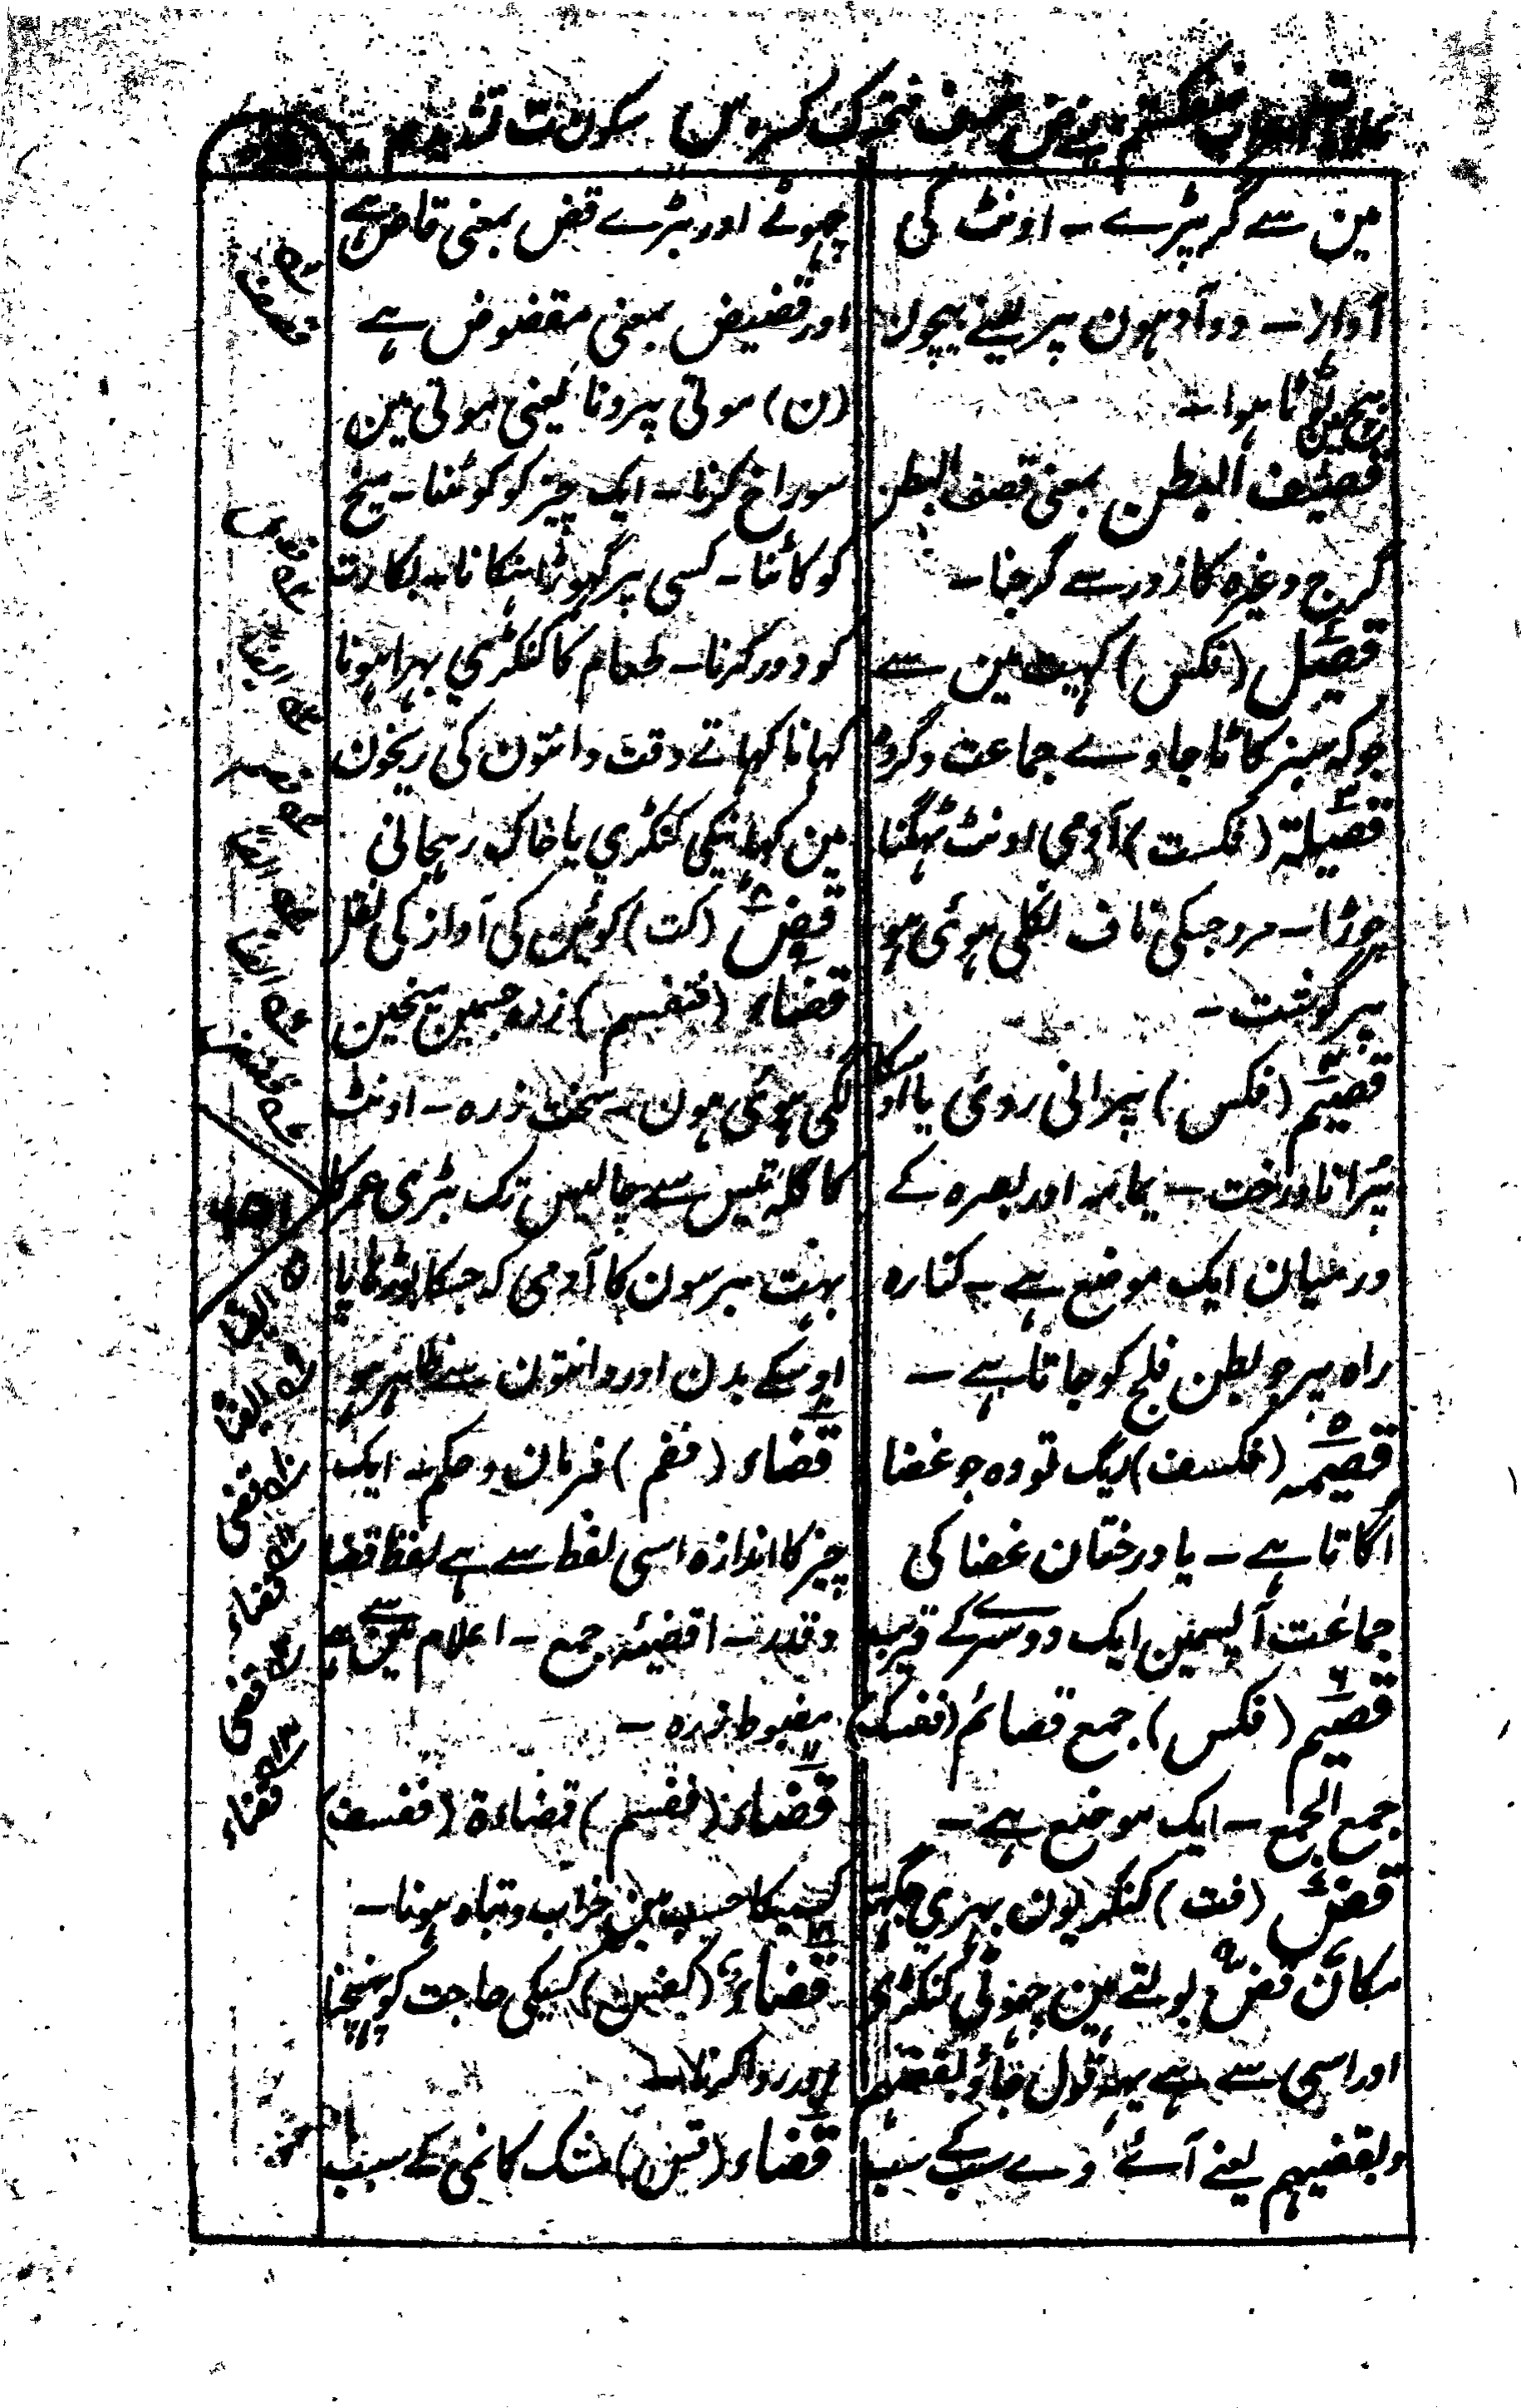 فتحہ ف ضمہ ض کسرہ ک سکون س ت تشدید
مین سے گر پڑے ۔ اونٹ کی
آواز ۔ دو آدمیون پر یعنے بیچون
بیچ ٹوٹا ہوا ۔
قصیف البطن بمعنی قصف البطن
گرج وغیرہ کا زور سے گرجنا ۔
قصیل (فکس) کہیت مین سے
جو کہ سبز کاٹا جاوے جماعت و گروہ
قصیلۃ (فکست) آدمی اونٹ ٹہگنا
چوڑا ۔ مرد جسکی ناف نکلی ہوئی ہو
پر گوشت ۔
قصیم (فکس) پرانی روئی یا اوسکا
پرانا درخت ۔ یمامہ اور بصرہ کے
درمیان ایک موضع ہے ۔ کنارہ
راہ پر جو بطن فلج کو جاتا ہے ۔
قصیمہ (فکسف) ریگ تودہ جو غضا
اگاتا ہے ۔ یا درختان غضا کی
جماعت آپسمین ایک دوسرے کے قریب
قصیم (فکس) جمع قصائم (ففسک)
جمع الجمع ۔ ایک موضع ہے ۔
قض (فت) کنکریون بہری جگہہ
مکان قض بولتے ہین چہوٹی کنکری
اور اسی سے ہے یہہ قول جاؤ بقضہم
و بقضیہم یعنے آئے وے سب کے سب
چہوٹے اور بڑے قض بمعنی قاض ہے
اور قضیض بمعنی مقضوض ہے
(ن) موتی پرونا یعنی موتی مین
سوراخ کرنا ۔ ایک چیز کو کوٹنا ۔ میخ
کو کاٹنا ۔ کسی پر گہوڑا ہنکانا ۔ بکارت
کو دور کرنا ۔ طعام کا کنکری بہرا ہونا
کہانا کہاتے وقت دانتون کی ریخون
مین کہانیکی کنکری یا خاک رہجانی
قض (کت) کوئین کی آواز کی نقل
قضاء (فتفسم) زرہ جسمین میخین
لگی ہوئی ہون ۔ سخت زرہ ۔ اونٹ
کا گلہ تیس سے چالیس تک بڑی عمر کا
بہت برسون کا آدمی کہ جسکا بوڑہاپا
اوسکے بدن اور دانتون سے ظاہر ہو
قضاء (ففم) فرمان و حکم ۔ ایک
چیز کا اندازہ اسی لفظ سے ہے لفظ قضا
و قدر ۔ اقضیۃ جمع ۔ اعلام مین سے ہے
مضبوط زرہ ۔
قضاء (ففسم) قضاءۃ (ففسف)
کسیکا حسب مین خراب و تباہ ہونا ۔
قضاء (کفس) کسیکی حاجت کو پہنچنا
اور روا کرنا ۔
قضاء (فتن) مشک کا نمی کے سبب
۵ ایضًا
ایضًا
قضی
قضاء
قضی
قضاء